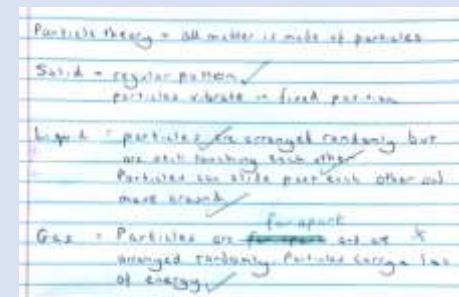 Particle theory = all matter is made of particles
Solid = regular pattern
particles vibrate in fixed position
Liquid = particles are arranged randomly but
are still touching each other
Particles can slide past each other and
move around
far apart
Gas = Particles are far apart and are
arranged randomly. Particles carry a lot
of energy